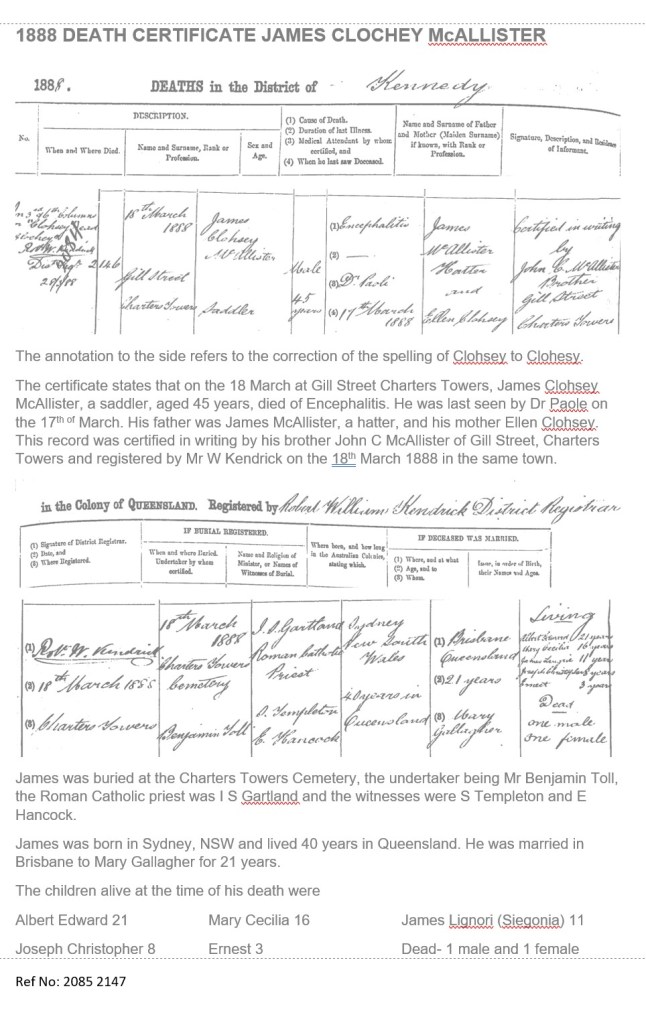 1888 DEATH CERTIFICATE JAMES CLOCHEY McALLISTER
1888. DEATHS in the District of Kennedy
DESCRIPTION.
No.
When and Where Died.
Name and Surname, Rank or Profession.
Sex and Age.
(1) Cause of Death.
(2) Duration of last Illness.
(3) Medical Attendant by whom certified, and
(4) When he last saw Deceased.
Name and Surname of Father and Mother (Maiden Surname) if known, with Rank or Profession.
Signature, Description, and Residence of Informant.
2146
18th March
1888
Gill Street
Charters Towers
James
Clohsey
McAllister
Saddler
Male
45
years
(1) Encephalitis
(2) —
(3) Dr Paoli
(4) 17th March
1888
James
McAllister
Hatter
and
Ellen Clohsey
Certified in writing
by
John C. McAllister
Brother
Gill Street
Charters Towers
The annotation to the side refers to the correction of the spelling of Clohsey to Clohesy.
The certificate states that on the 18 March at Gill Street Charters Towers, James Clohsey
McAllister, a saddler, aged 45 years, died of Encephalitis. He was last seen by Dr Paole on
the 17th of March. His father was James McAllister, a hatter, and his mother Ellen Clohsey.
This record was certified in writing by his brother John C McAllister of Gill Street, Charters
Towers and registered by Mr W Kendrick on the 18th March 1888 in the same town.
in the Colony of QUEENSLAND. Registered by Robert William Kendrick District Registrar
(1) Signature of District Registrar.
(2) Date, and
(3) Where Registered.
IF BURIAL REGISTERED.
When and where Buried. Undertaker by whom certified.
Name and Religion of Minister, or Names of Witnesses of Burial.
Where born, and how long in the Australian Colonies, stating which.
IF DECEASED WAS MARRIED.
(1) Where, and at what
(2) Age, and to
(3) Whom
Issue, in order of Birth, their Names and Ages.
(1) Robt. W. Kendrick
(2) 18th March 1888
(3) Charters Towers
18th March
1888
Charters Towers
Cemetery
Benjamin Toll
Gartland
Roman Catholic
Priest
Templeton
E. Hancock
Sydney
New South
Wales
40 years in
Queensland
(1) Brisbane
Queensland
(2) 21 years
(3) Mary
Gallagher
Living
Albert Edward 21 years
Mary Cecilia 16 years
11 years
Joseph Christopher 8 years
Ernest 3 years
Dead
one male
one female
James was buried at the Charters Towers Cemetery, the undertaker being Mr Benjamin Toll,
the Roman Catholic priest was I S Gartland and the witnesses were S Templeton and E
Hancock.
James was born in Sydney, NSW and lived 40 years in Queensland. He was married in
Brisbane to Mary Gallagher for 21 years.
The children alive at the time of his death were
Albert Edward 21 Mary Cecilia 16 James Lignori (Siegonia) 11
Joseph Christopher 8 Ernest 3 Dead- 1 male and 1 female
Ref No: 2085 2147